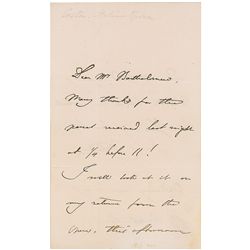 Dear Mr Bartholomew.
Many thanks for the
parcel received last night
at ¼ before 11!
I will look at it on
my return from the
this afternoon